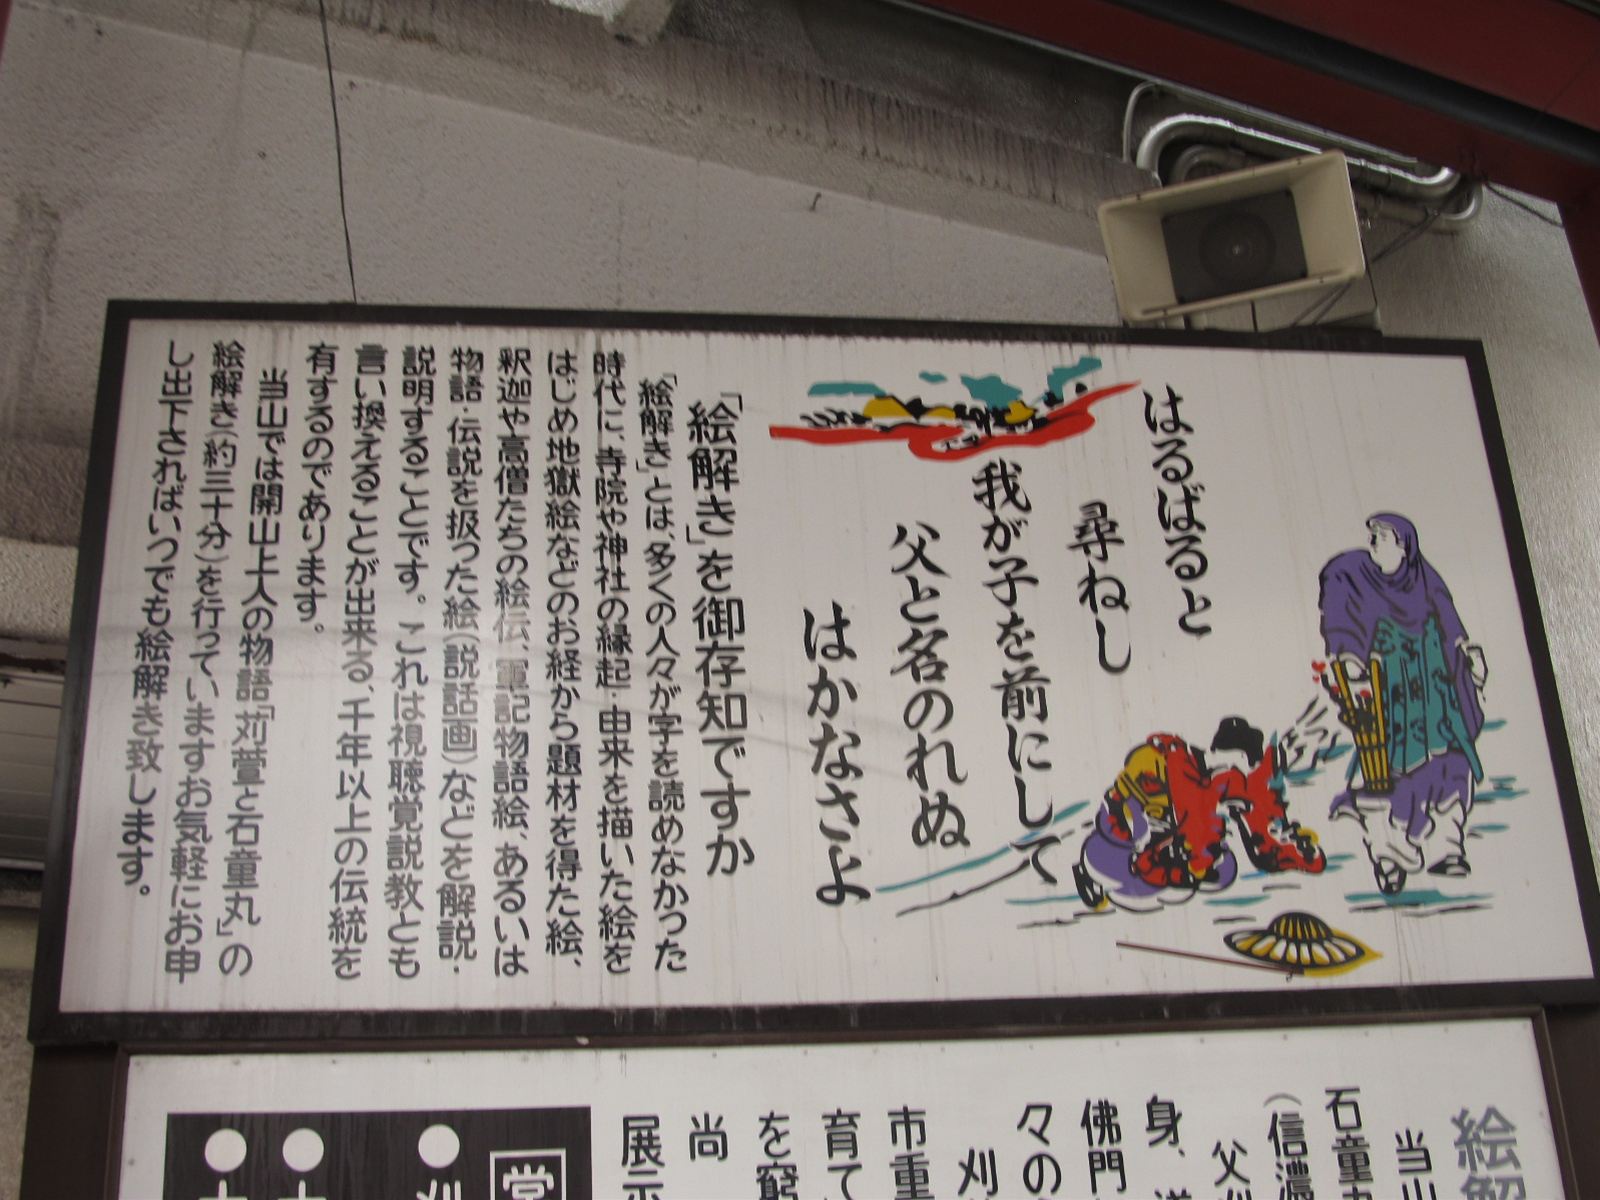 はるばると
尋ねし
我が子を前にして
父と名のれぬ
はかなさよ
「絵解き」を御存知ですか
「絵解き」とは、多くの人々が字を読めなかった
時代に、寺院や神社の縁起・由来を描いた絵を
はじめ地獄絵などのお経から題材を得た絵、
釈迦や高僧たちの絵伝、軍記物語絵、あるいは
物語・伝説を扱った絵(説話画)などを解説・
説明することです。これは視聴覚説教とも
言い換えることが出来る、千年以上の伝統を
有するのであります。
当山では開山上人の物語「苅萱と石童丸」の
絵解き(約三十分)を行っていますお気軽にお申
し出下さればいつでも絵解き致します。
絵解
当山
石童
(信濃
父
身、
佛門
々の
刈
市重
育て
を窮
尚
展示
堂